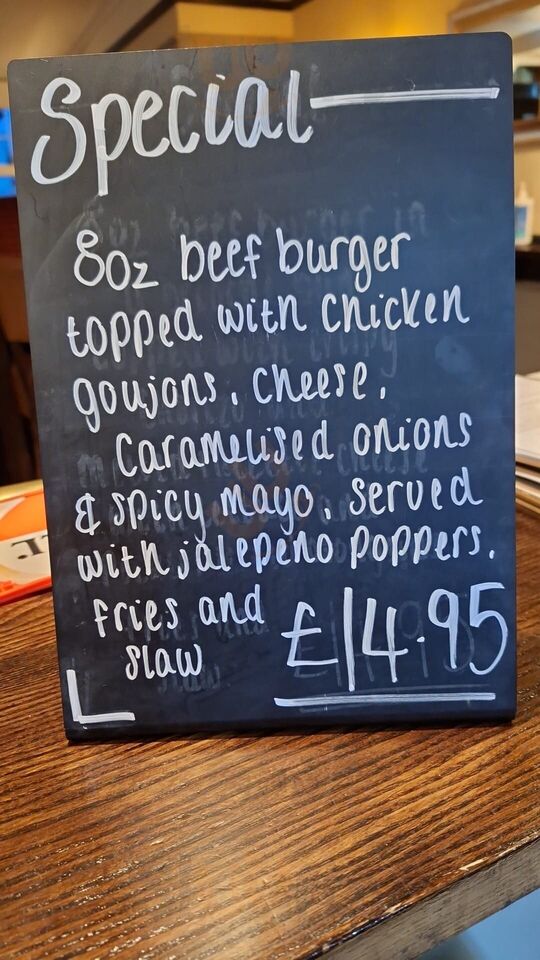 Special
8oz beef burger
topped with chicken
goujons, cheese,
caramelised onions
& spicy mayo, served
with jalepeno poppers,
fries and
slaw
£14.95